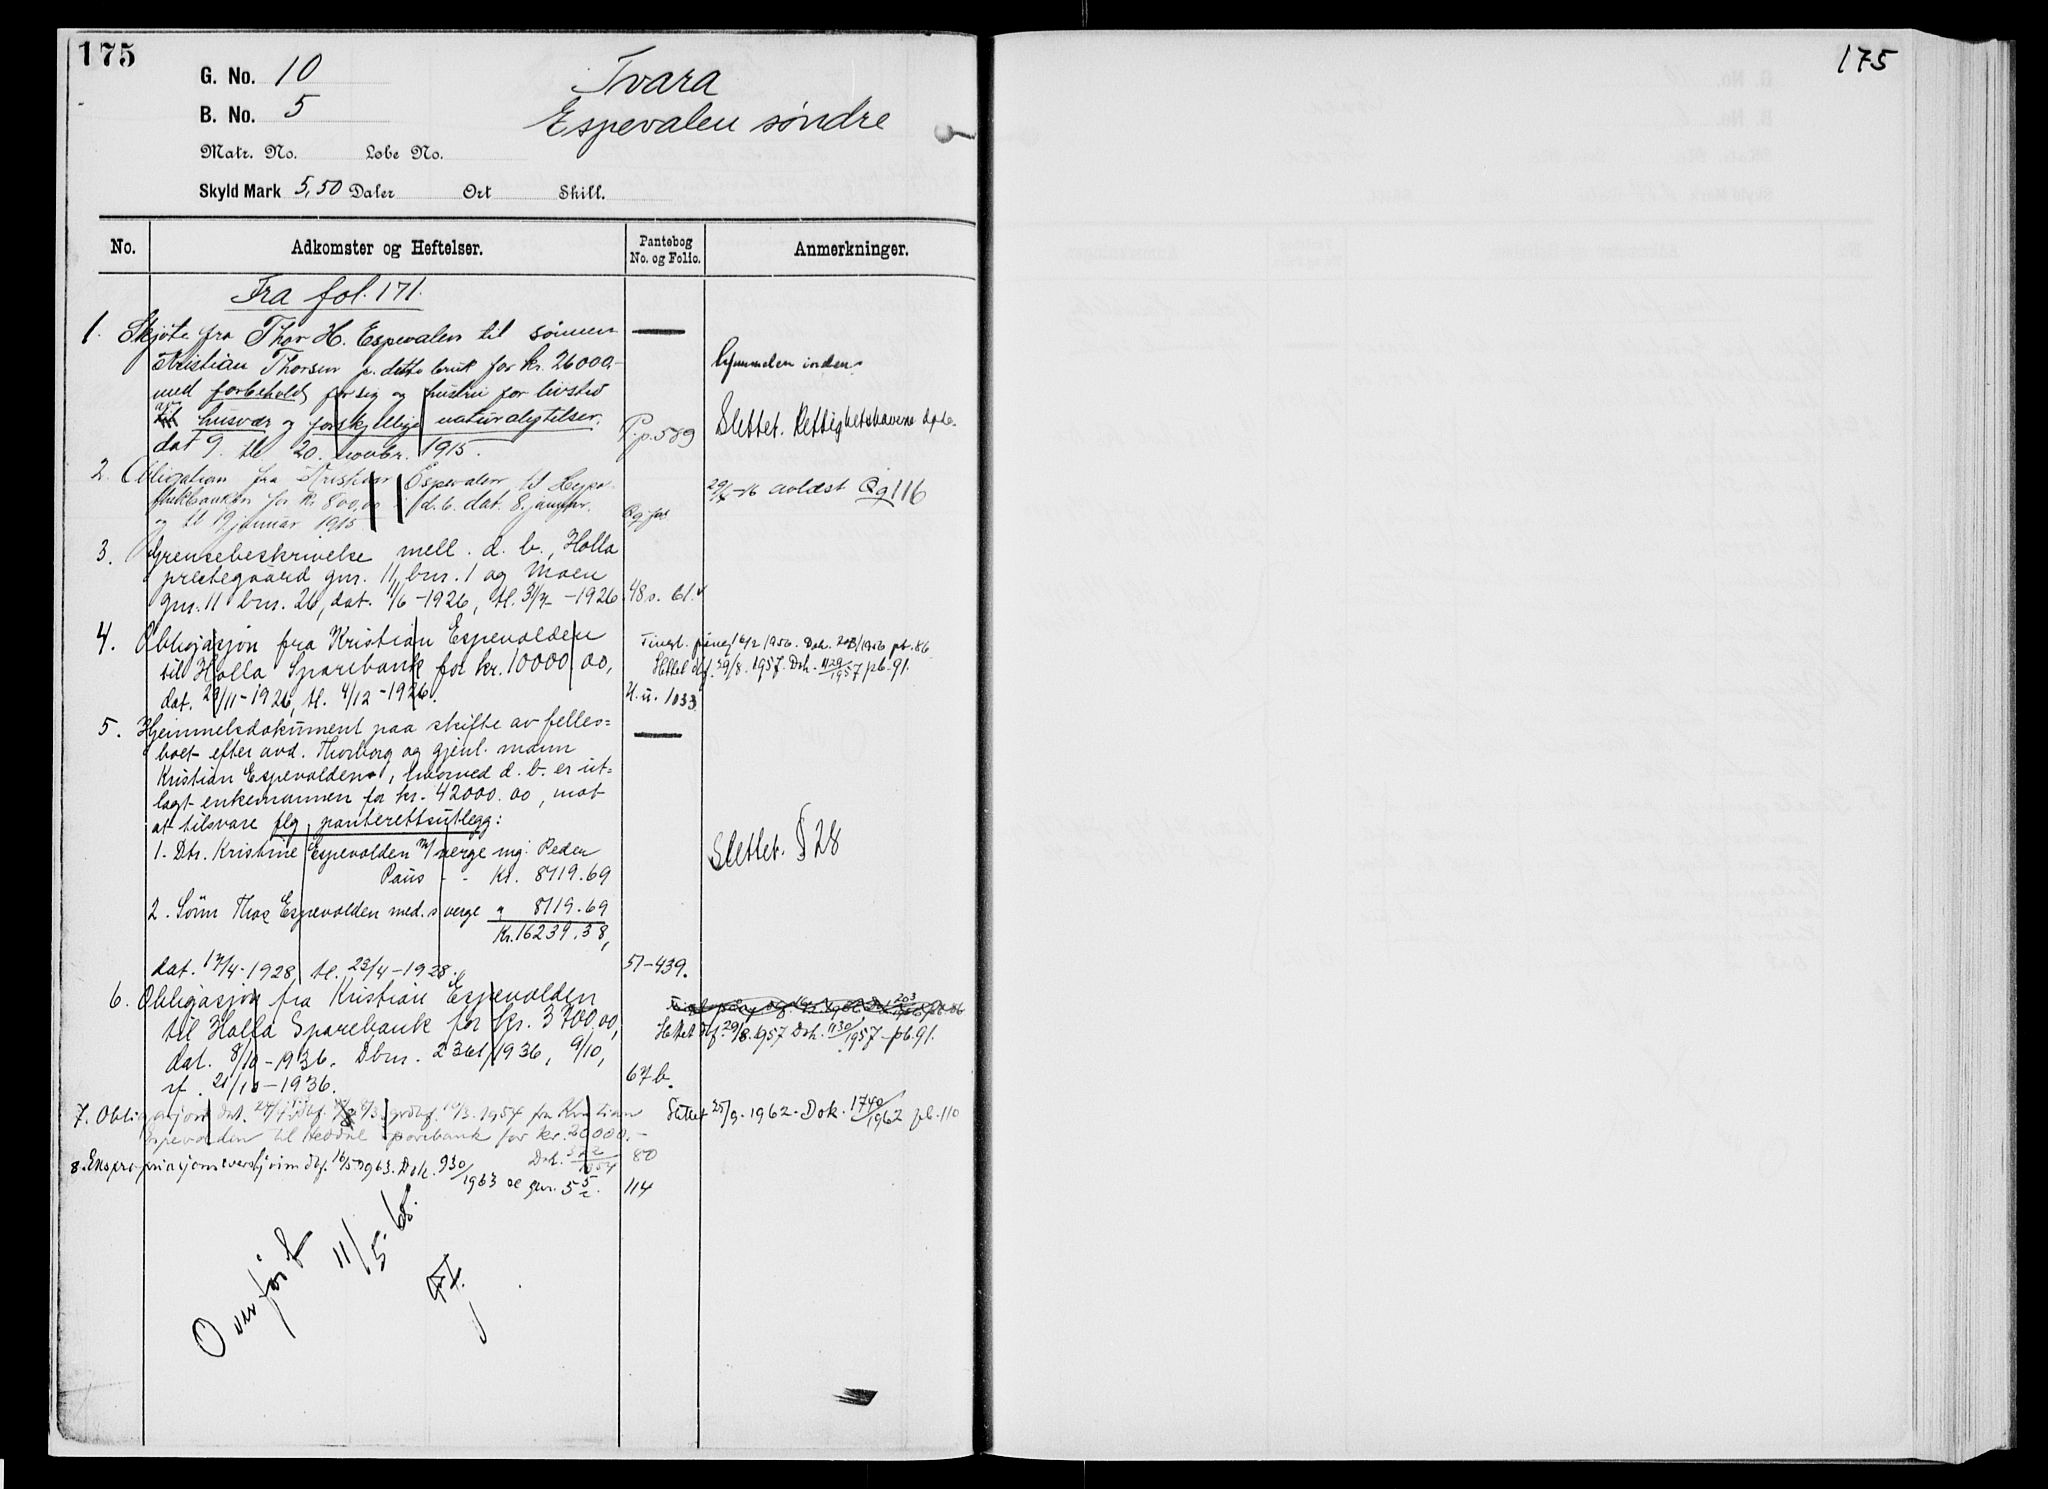 175
175
G. No. 10
B. No. 5
Tvara
Espevalen søndre
Matr. No. Løbe No.
Skyld Mark 5,50 Daler Ort Skill.
No. Adkomster og Heftelser. Pantebog No. og Folio. Anmerkninger.
Fra fol. 171.
1. Skjøte fra Thor H. Espevalen til sønnen —
Kristian Thorsen p. dette bruk for kr. 26000,-
med forbehold for sig og hustru for livstid
husvær og forskjellige naturalytelser. P.p. 589
dat 9. tl. 20. novbr. 1915.
Hjemmelen inden
Slettet. Rettighetshaverne døde.
2. Obligation fra Kristian Espevalen til Hypo-
thekbanken for kr 800,00 i d. b. dat. 8. januar
og tl 19 januar 1915
avlæst Qq 116
3. Grensebeskrivelse mell. d. b., Holla
prestegaard gnr. 11, bnr. 1 og Moen
gnr. 11 bnr. 26, dat. 1/6-1926, tl. -1926. 48 s.
4. Obligasjon fra Kristian Espevolden
til Holla Sparebank for kr. 10000,00,
dat. 29/11-1926, tl. 4/12-1926. H.u. 1033
Tingl. 16/2 1956. Dok. /1956 pb. 86
Slettet dbf. 29/8. 1957. Dok. 1129/1957 pb. 91.
5. Hjemmelsdokument paa skifte av felles= —
boet efter avd. Thorborg og gjenl. mann
Kristian Espevolden, hvorved d. b. er ut=
lagt enkemannen for kr. 42000.00, mot
at tilsvare flg. panterettsutlegg:
1. Dtr. Kristine Espevolden m/ verge mg. Peder
Paus - - Kr. 8119.69
2. Sønn Thor Espevolden med s verge " 8119.69
Kr. 16239.38,
dat. 17/4-1928, tl. 23/4-1928. 51-439.
Slettet. § 28
6. Obligasjon fra Kristian Espevolden
til Holla Sparebank for kr. 3700,00,
dat. 8/10-1936. Dbnr. 2361/1936, 9/10,
rf. 21/10-1936. 67 b.
Slettet dbf. 29/8. 1957 Dok. 1130/1957 pb. 91.
7. Obligasjon dat. 1954 fra Kristian
Espevolden til Heddal Sparebank for kr. 20000.-
Dok. /1954 80
Slettet 25/9. 1962. Dok. 1740/1962 pb. 110
8. Ekspropriasjonsoverskjønn dbf. 16/5 1963. Dok. 930/1963 114
Overført 11/5 65.